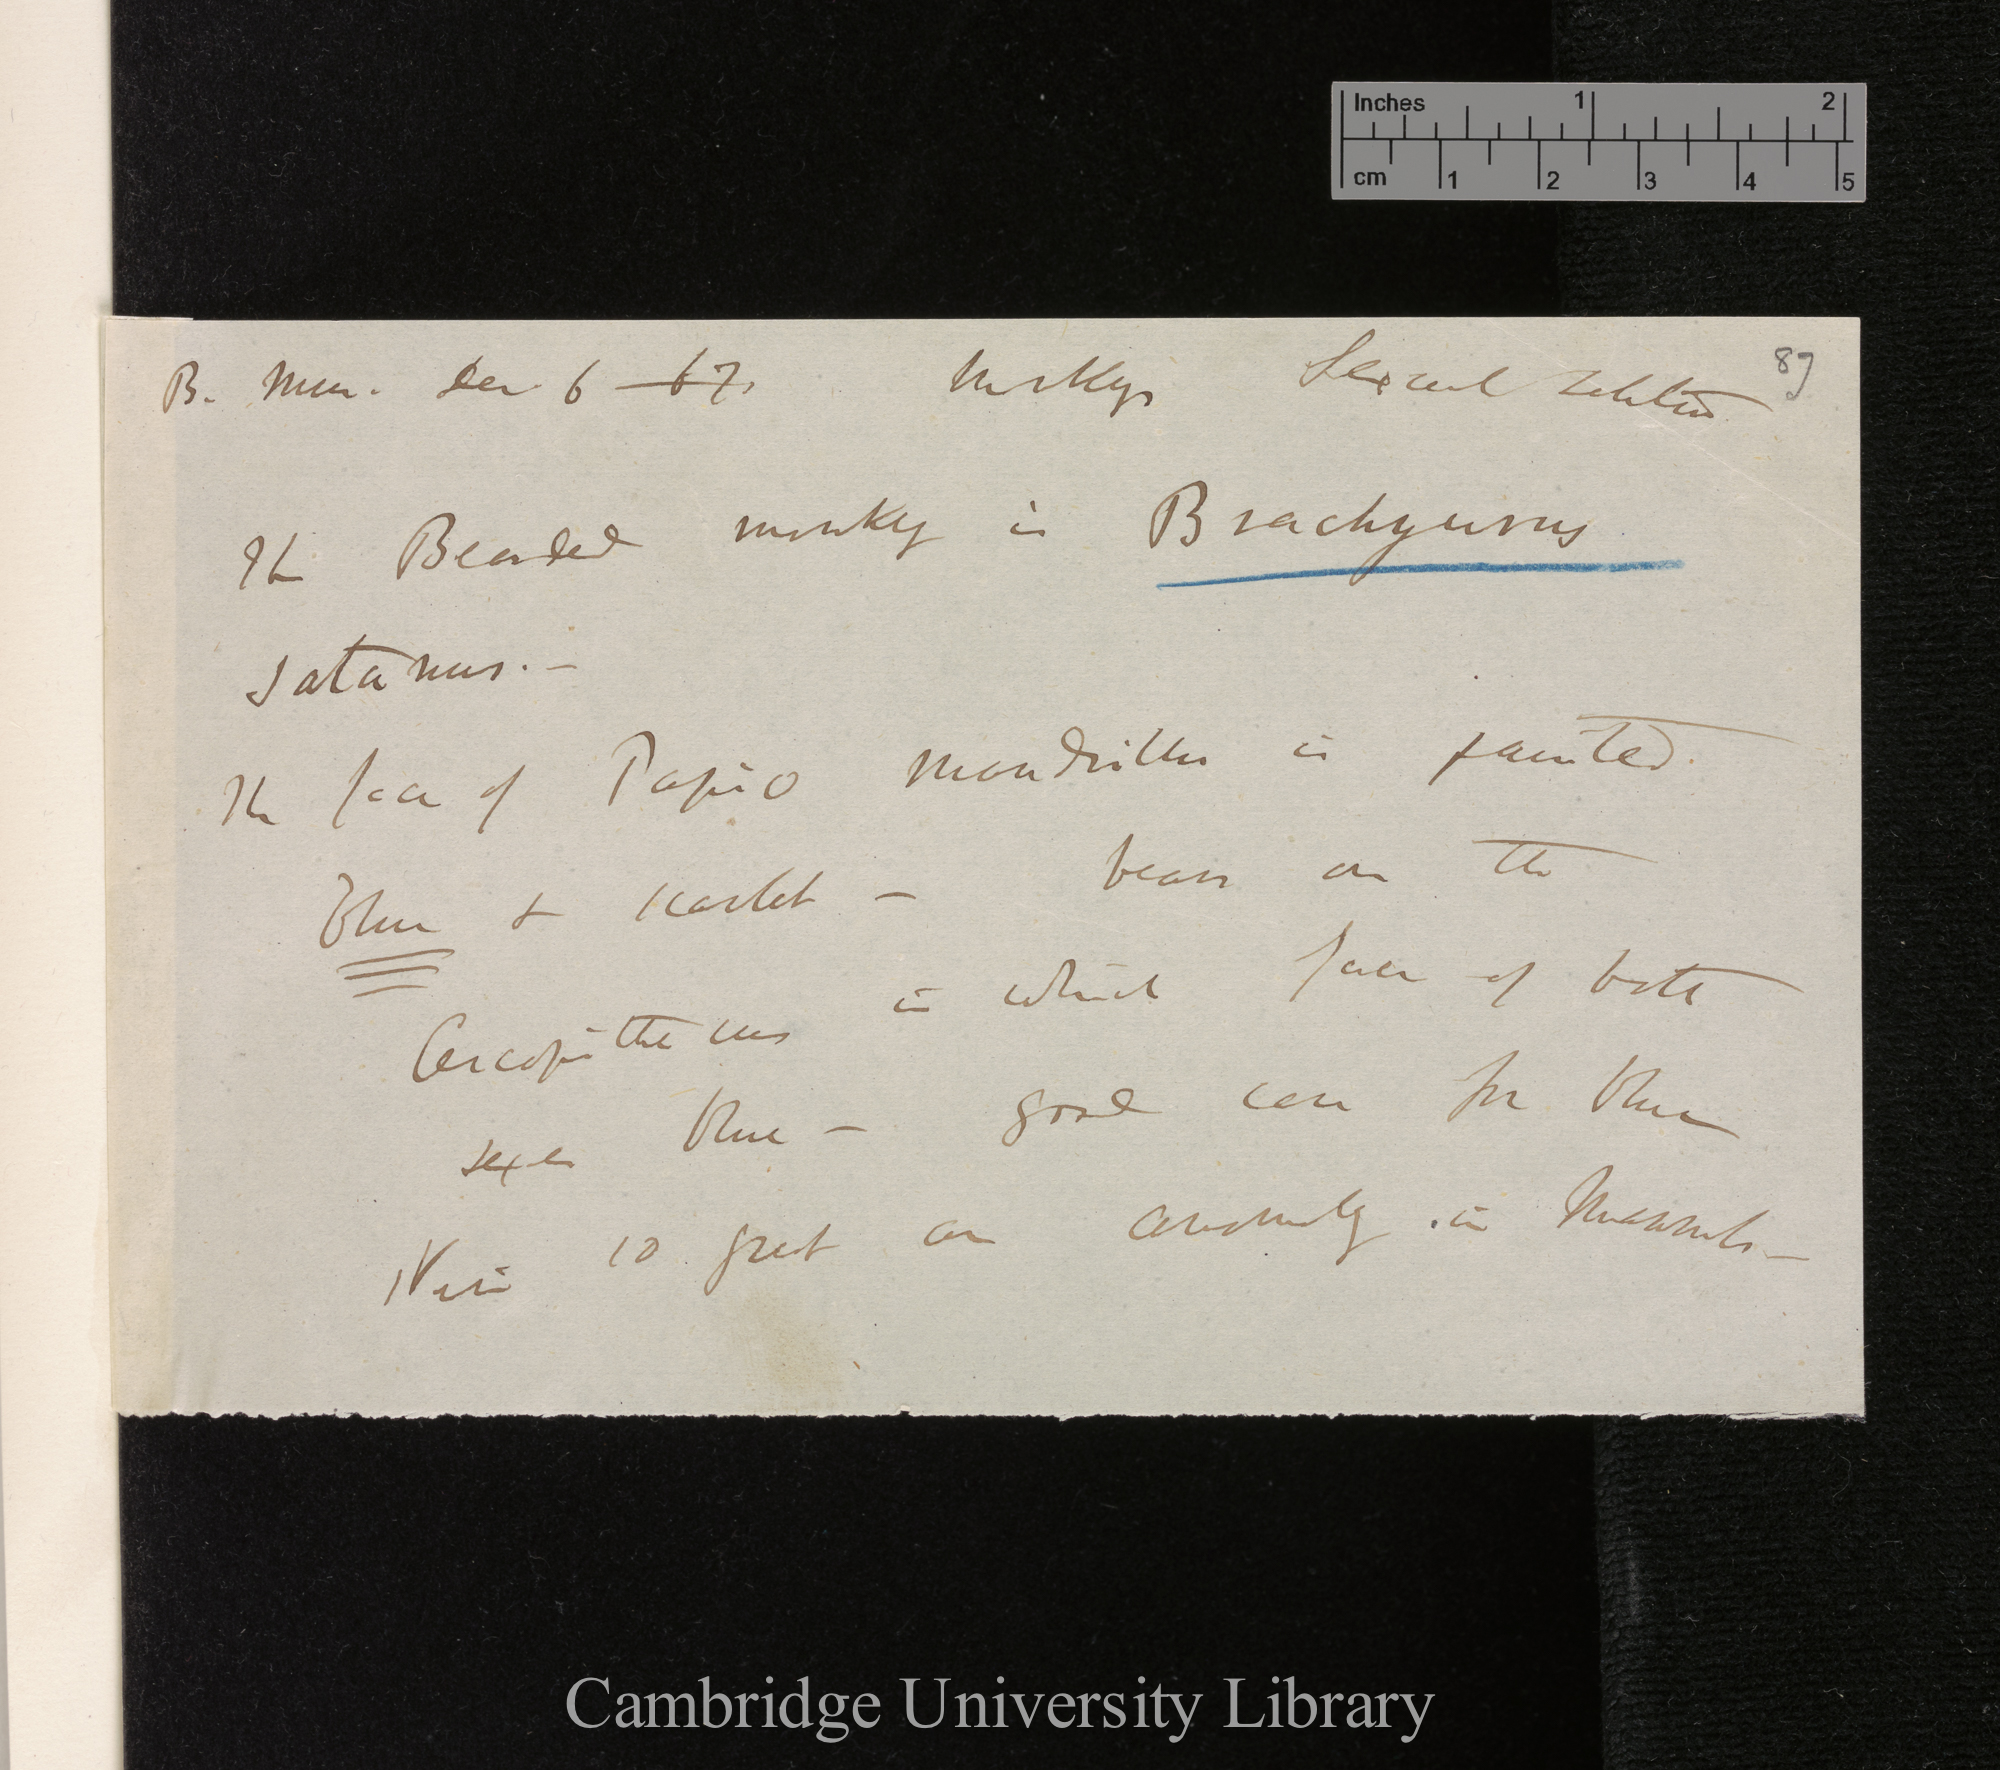 Inches 1 2
cm 1 2 3 4 5
89
B. Mus. Dec 6 – 67. Monkeys Sexual selection
The Bearded monkey is Brachyurus
satanus. –
The face of Papio mandrillus is painted
blue & scarlet – bears on the
Cercopithecus in which face of both
sexes blue – good case for blue
is so great an in Mammals –
Cambridge University Library